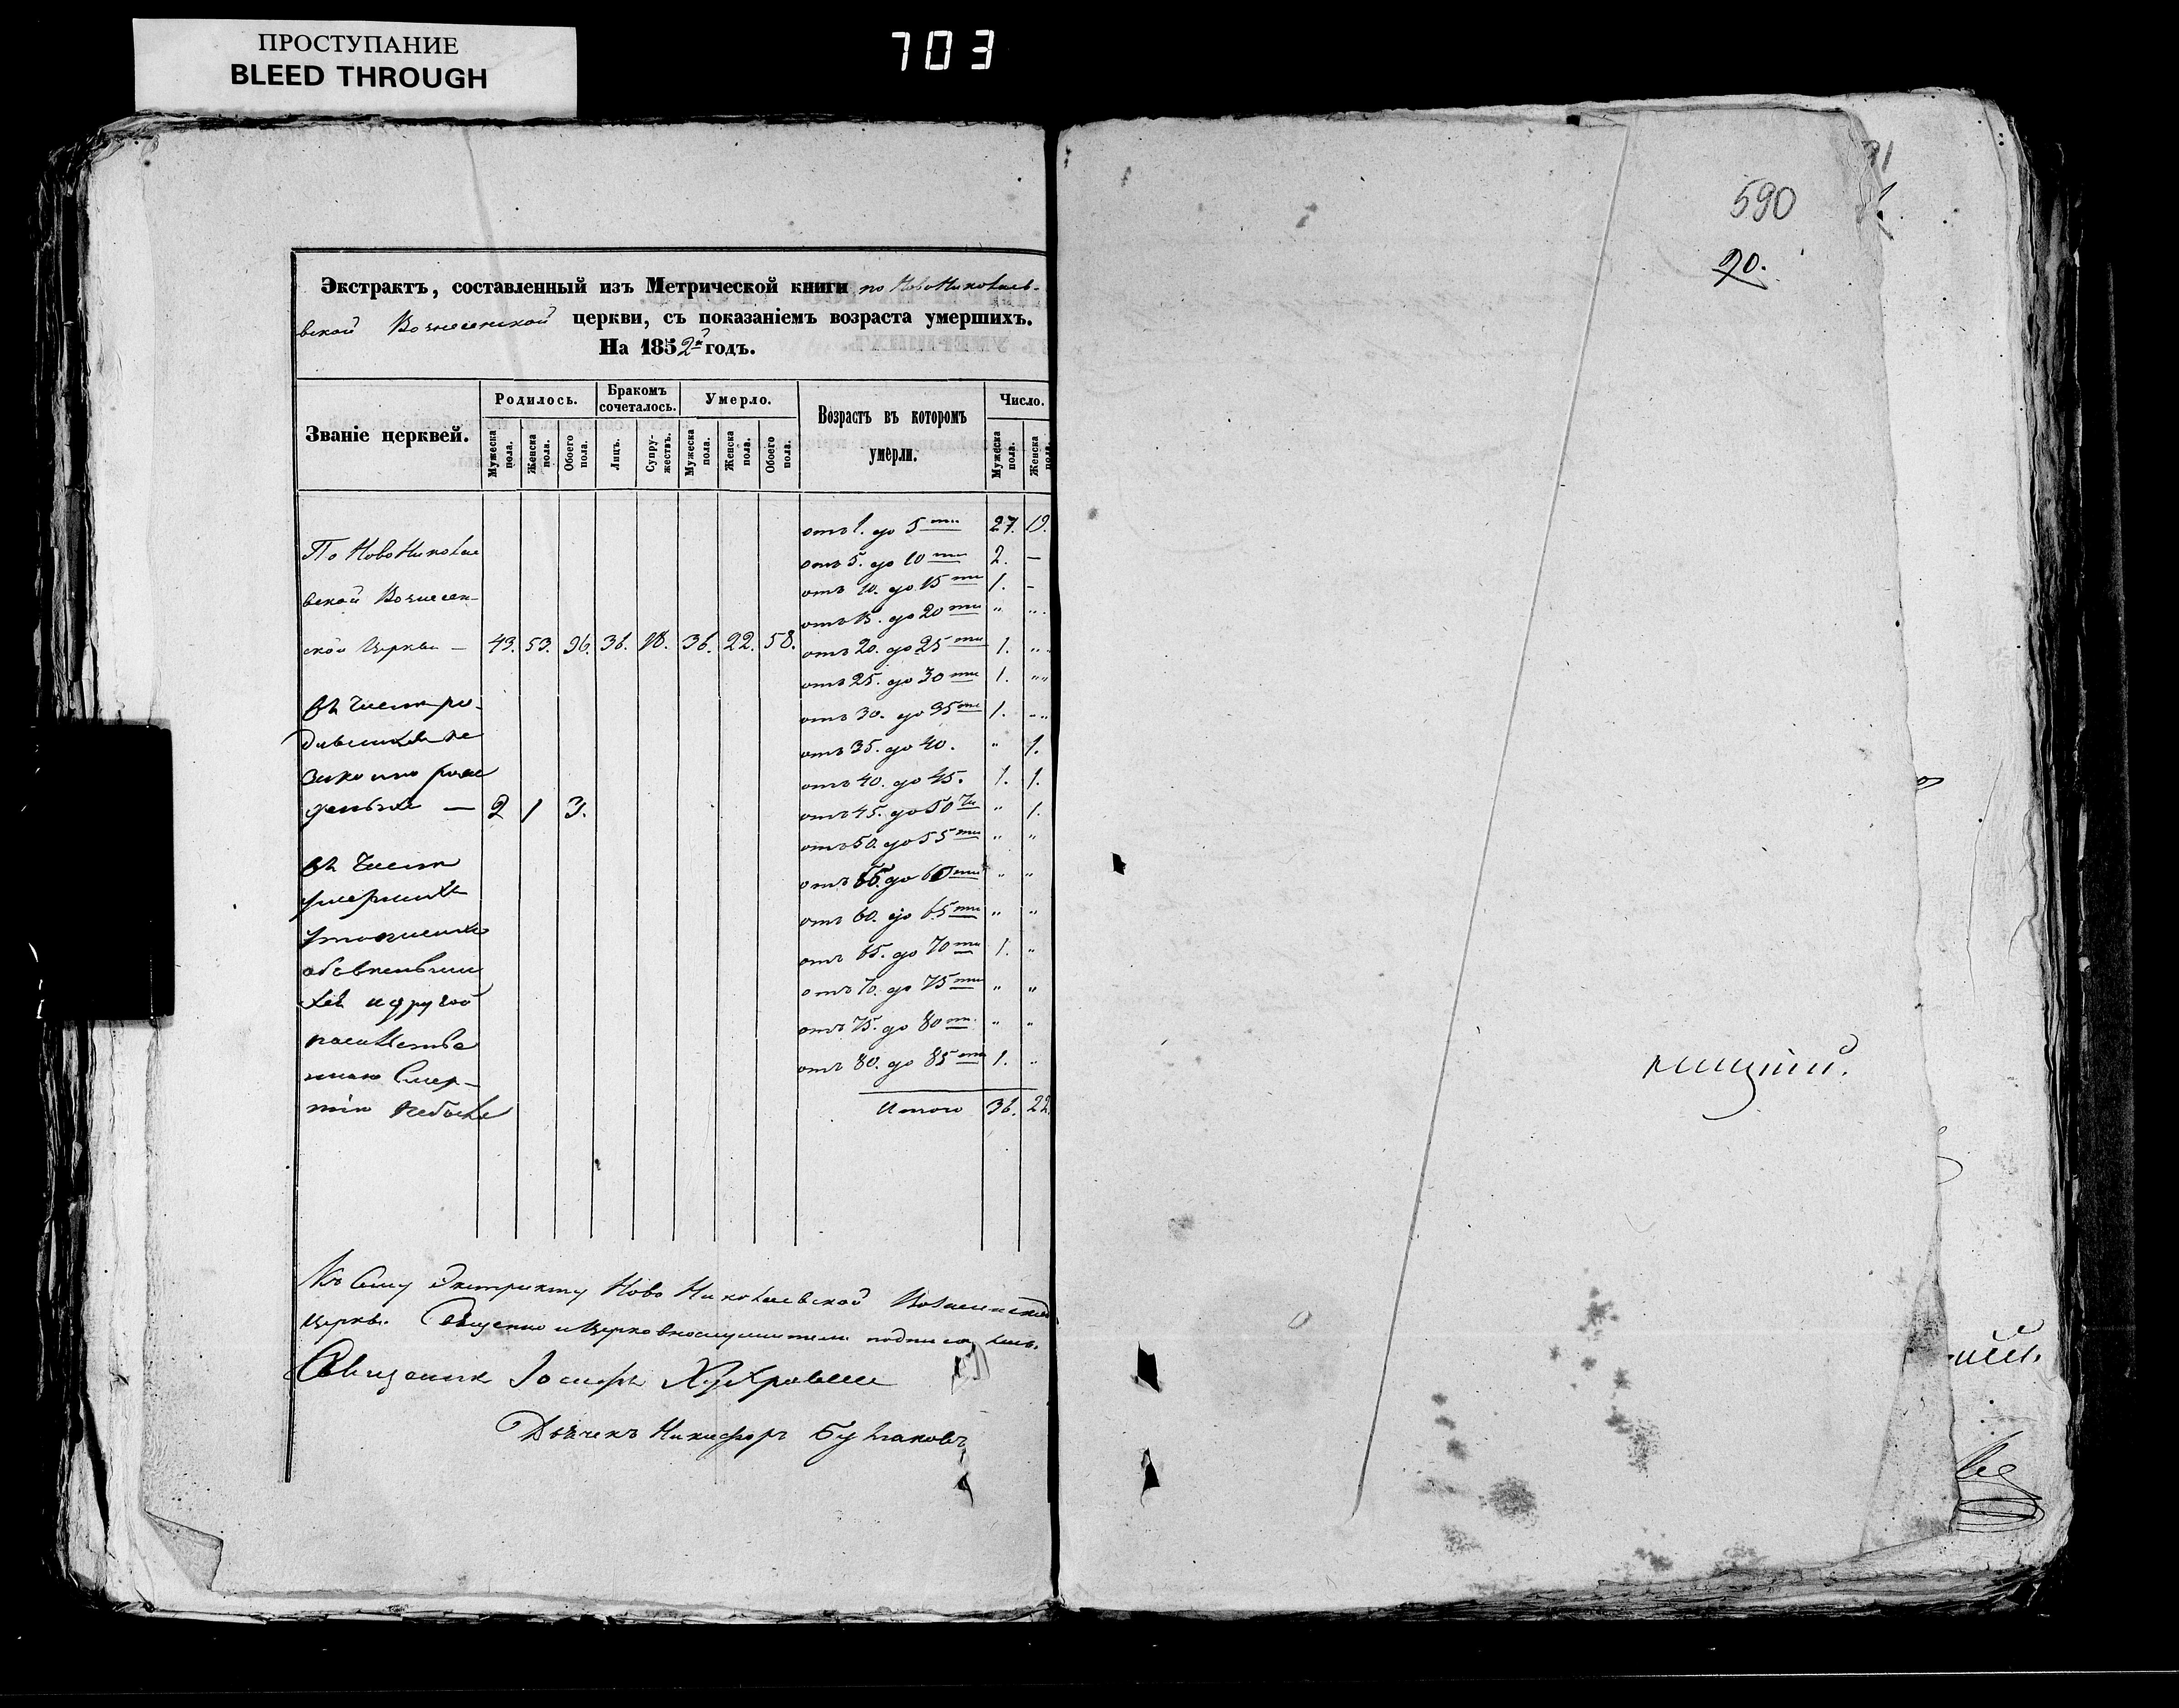 ПРОСТУПАНИЕ
BLEED THROUGH
703
Экстрактъ, составленный изъ Метрической книги по Новониколаев-
вской Вознесенской церкви, съ показаніемъ возраста умершихъ.
На 1852й годъ.
Званіе церквей.
Родилось.
Бракомъ сочеталось.
Умерло.
Возрастъ въ которомъ умерли.
Число.
Мужеска пола.
Женска пола.
Обоего пола.
Лицъ.
Супружествъ.
Мужеска пола.
Женска пола.
Обоего пола.
Мужеска пола.
Женска пола.
отъ 1. до 5ти 27. 19.
По Новониколае
отъ 5. до 10ти 2. —
отъ 10. до 15ти 1. -
вской Вознесен-
отъ 15. до 20ти " "
ской Церкви — 43. 53. 96. 36. 18. 36. 22. 58. отъ 20. до 25ти 1. "
отъ 25. до 30ти 1. "
въ числѣ ро-
отъ 30. до 35ти 1. "
дившихся не
отъ 35. до 40. " 1.
законно рож
отъ 40. до 45. 1. 1.
денныхъ — 2 1 3.
отъ 45. до 50ти " 1.
отъ 50. до 55ти " "
въ числѣ
отъ 55. до 60ти " "
умершихъ
отъ 60. до 65ти " "
отъ 65. до 70ти 1. "
отъ 70. до 75ти " "
и другой
отъ 75. до 80ти " "
отъ 80. до 85ти 1. "
ною Смер-
тію небыло
Итого 36. 22.
Къ Сему Экстракту Ново Николаевской Вознесенской
церкви Священно и Церковнослужители подписались.
Священник Іосифъ
Дьячекъ Никифоръ
590
90.